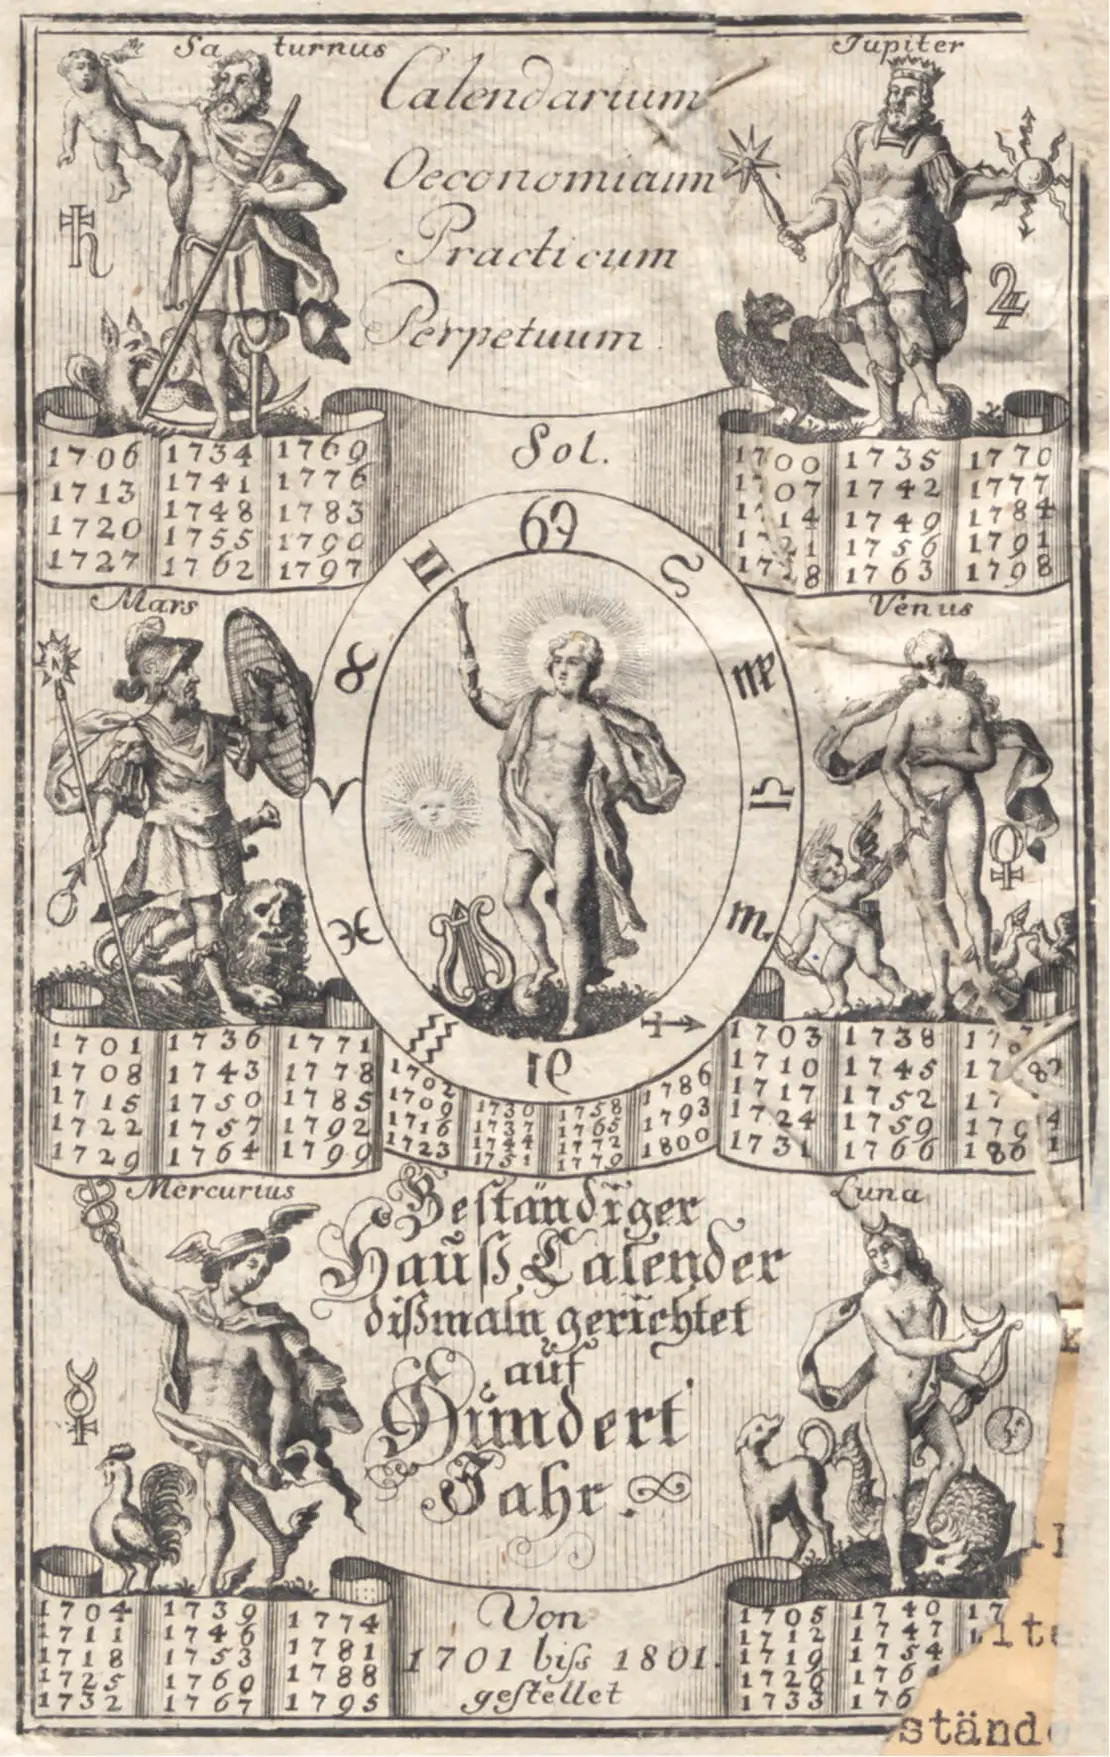 Saturnus
Calendarium
Oeconomicum
Practicum
Perpetuum.
Jupiter
♄
♃
Sol.
1706 1734 1769
1713 1741 1776
1720 1748 1783
1727 1755 1790
1762 1797
1700 1735 1770
1707 1742 1777
1714 1749 1784
1721 1756 1791
1728 1763 1798
Mars
Venus
♋ ♌ ♍ ♎ ♏ ♐ ♑ ♒ ♓ ♈ ♉ ♊
♀
1701 1736 1771
1708 1743 1778
1715 1750 1785
1722 1757 1792
1729 1764 1799
1702 1730 1758 1786
1709 1737 1765 1793
1716 1744 1772 1800
1723 1751 1779
1703 1738
1710 1745
1717 1752
1724 1759
1731 1766 1801
Mercurius
Luna
☿
Beständiger
Hauß Calender
dißmaln gerichtet
auf
Hundert
Jahr.
1704 1739 1774
1711 1746 1781
1718 1753 1788
1725 1760 1795
1732 1767
Von
1701 biß 1801.
gestellet
1705 1740 17
1712 1747
1719 1754
1726 176
1733 176
stände